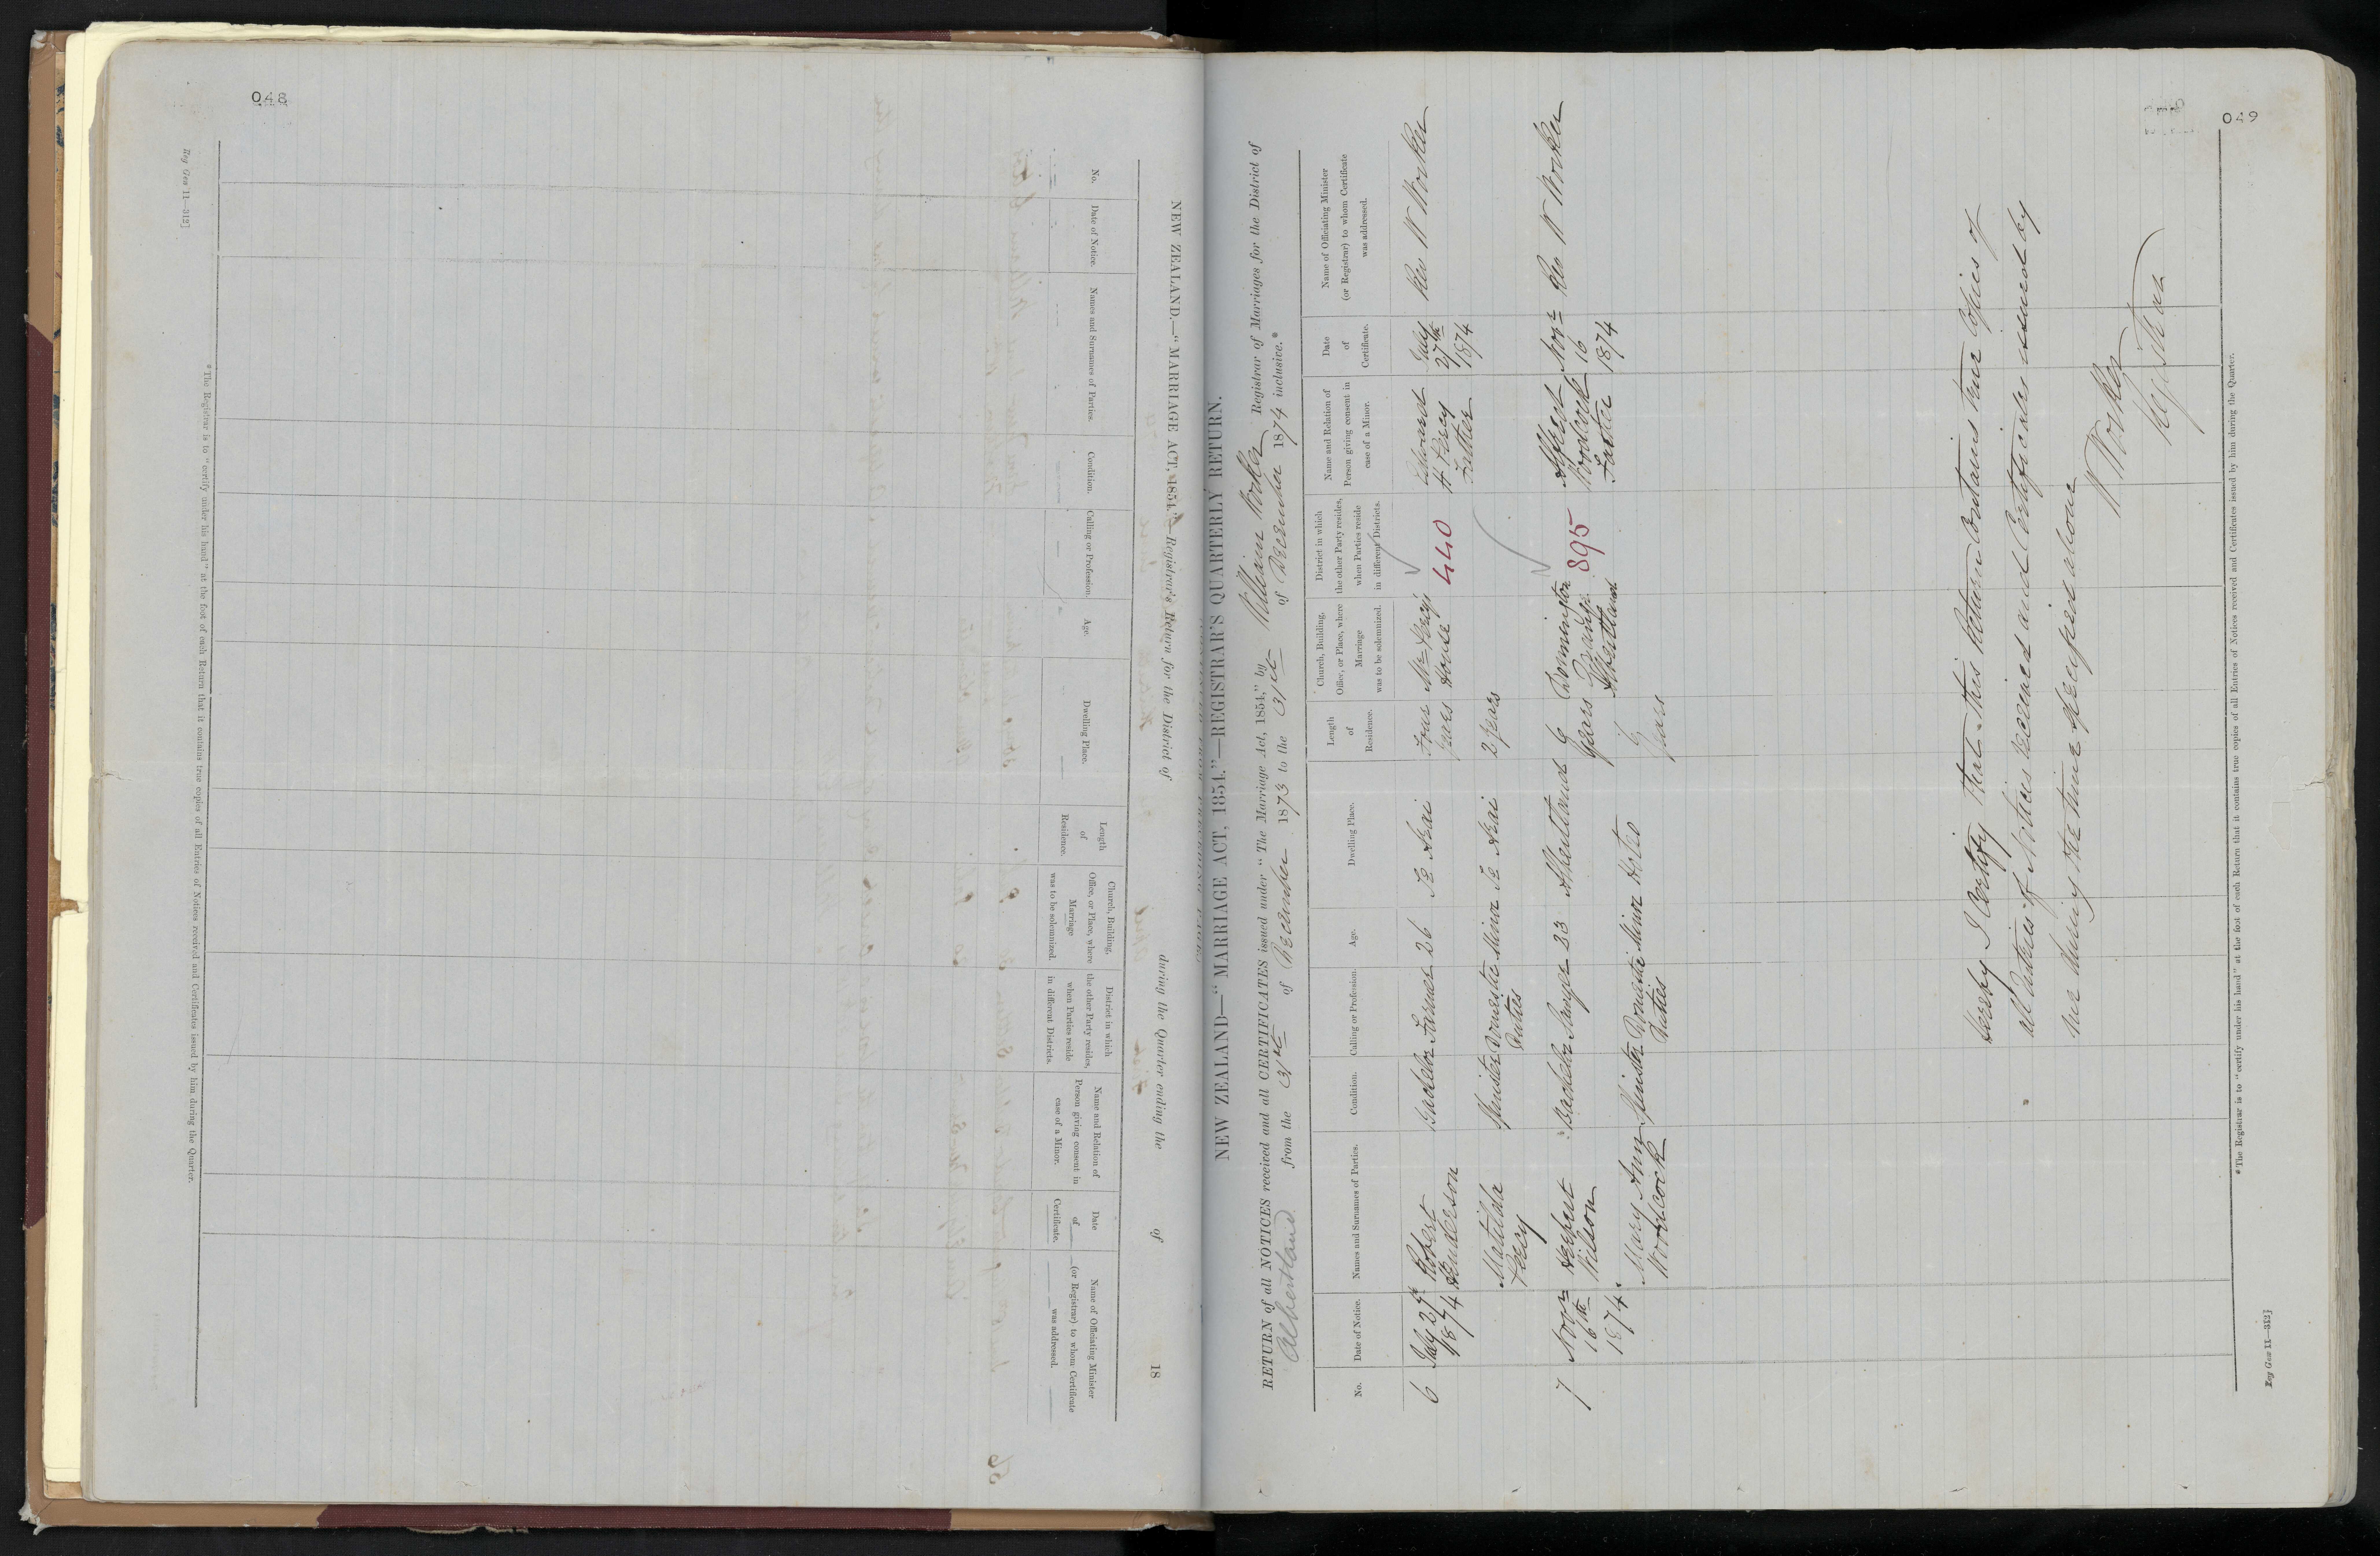 048
Reg Gen 11—312]
NEW ZEALAND.—"MARRIAGE ACT, 1854."—Registrar's Return for the District of during the Quarter ending the of 18
No.
Date of Notice.
Names and Surnames of Parties.
Condition.
Calling or Profession.
Age.
Dwelling Place.
Length
of
Residence.
Church, Building,
Office, or Place, where
Marriage
was to be solemnized.
District in which
the other Party resides,
when Parties reside
in different Districts.
Name and Relation of
Person giving consent in
case of a Minor.
Date
of
Certificate.
Name of Officiating Minister
(or Registrar) to whom Certificate
was addressed.
* The Registrar is to "certify under his hand" at the foot of each Return that it contains true copies of all Entries of Notices received and Certificates issued by him during the Quarter.
049
NEW ZEALAND—"MARRIAGE ACT, 1854."—REGISTRAR'S QUARTERLY RETURN.
RETURN of all NOTICES received and all CERTIFICATES issued under "The Marriage Act, 1854," by William Worker Registrar of Marriages for the District of
Albertland from the 31st of December 1873 to the 31st of December 1874 inclusive.*
No.
Date of Notice.
Names and Surnames of Parties.
Condition.
Calling or Profession.
Age.
Dwelling Place.
Length
of
Residence.
Church, Building,
Office, or Place, where
Marriage
was to be solemnized.
District in which
the other Party resides,
when Parties reside
in different Districts.
Name and Relation of
Person giving consent in
case of a Minor.
Date
of
Certificate.
Name of Officiating Minister
(or Registrar) to whom Certificate
was addressed.
6 July 27th Robert Bachelor Farmer 26 Te Arai Four Mr Percy's Edward July Rev W Worker
1874 Henderson years House 440 H Percy 27th
Father 1874
Matilda Spinster Domestic Minor Te Arai 2 years
Percy Duties
7 Novr Herbert Bachelor 23 Albertland 9 Donnington Alfred Novr Rev W Worker
16th Wilson years Grange 895 Woolcock 16
1874 Albertland Father 1874
Mary Ann Spinster Domestic Minor Hoteo 9
Woolcock Duties years
Hereby I Certify that this Return Contains true Copies of
all Entries of Notices received and Certificates issued by
me during the time specified above
W Worker
Registrar
* The Registrar is to "certify under his hand" at the foot of each Return that it contains true copies of all Entries of Notices received and Certificates issued by him during the Quarter.
Reg Gen 11—312]